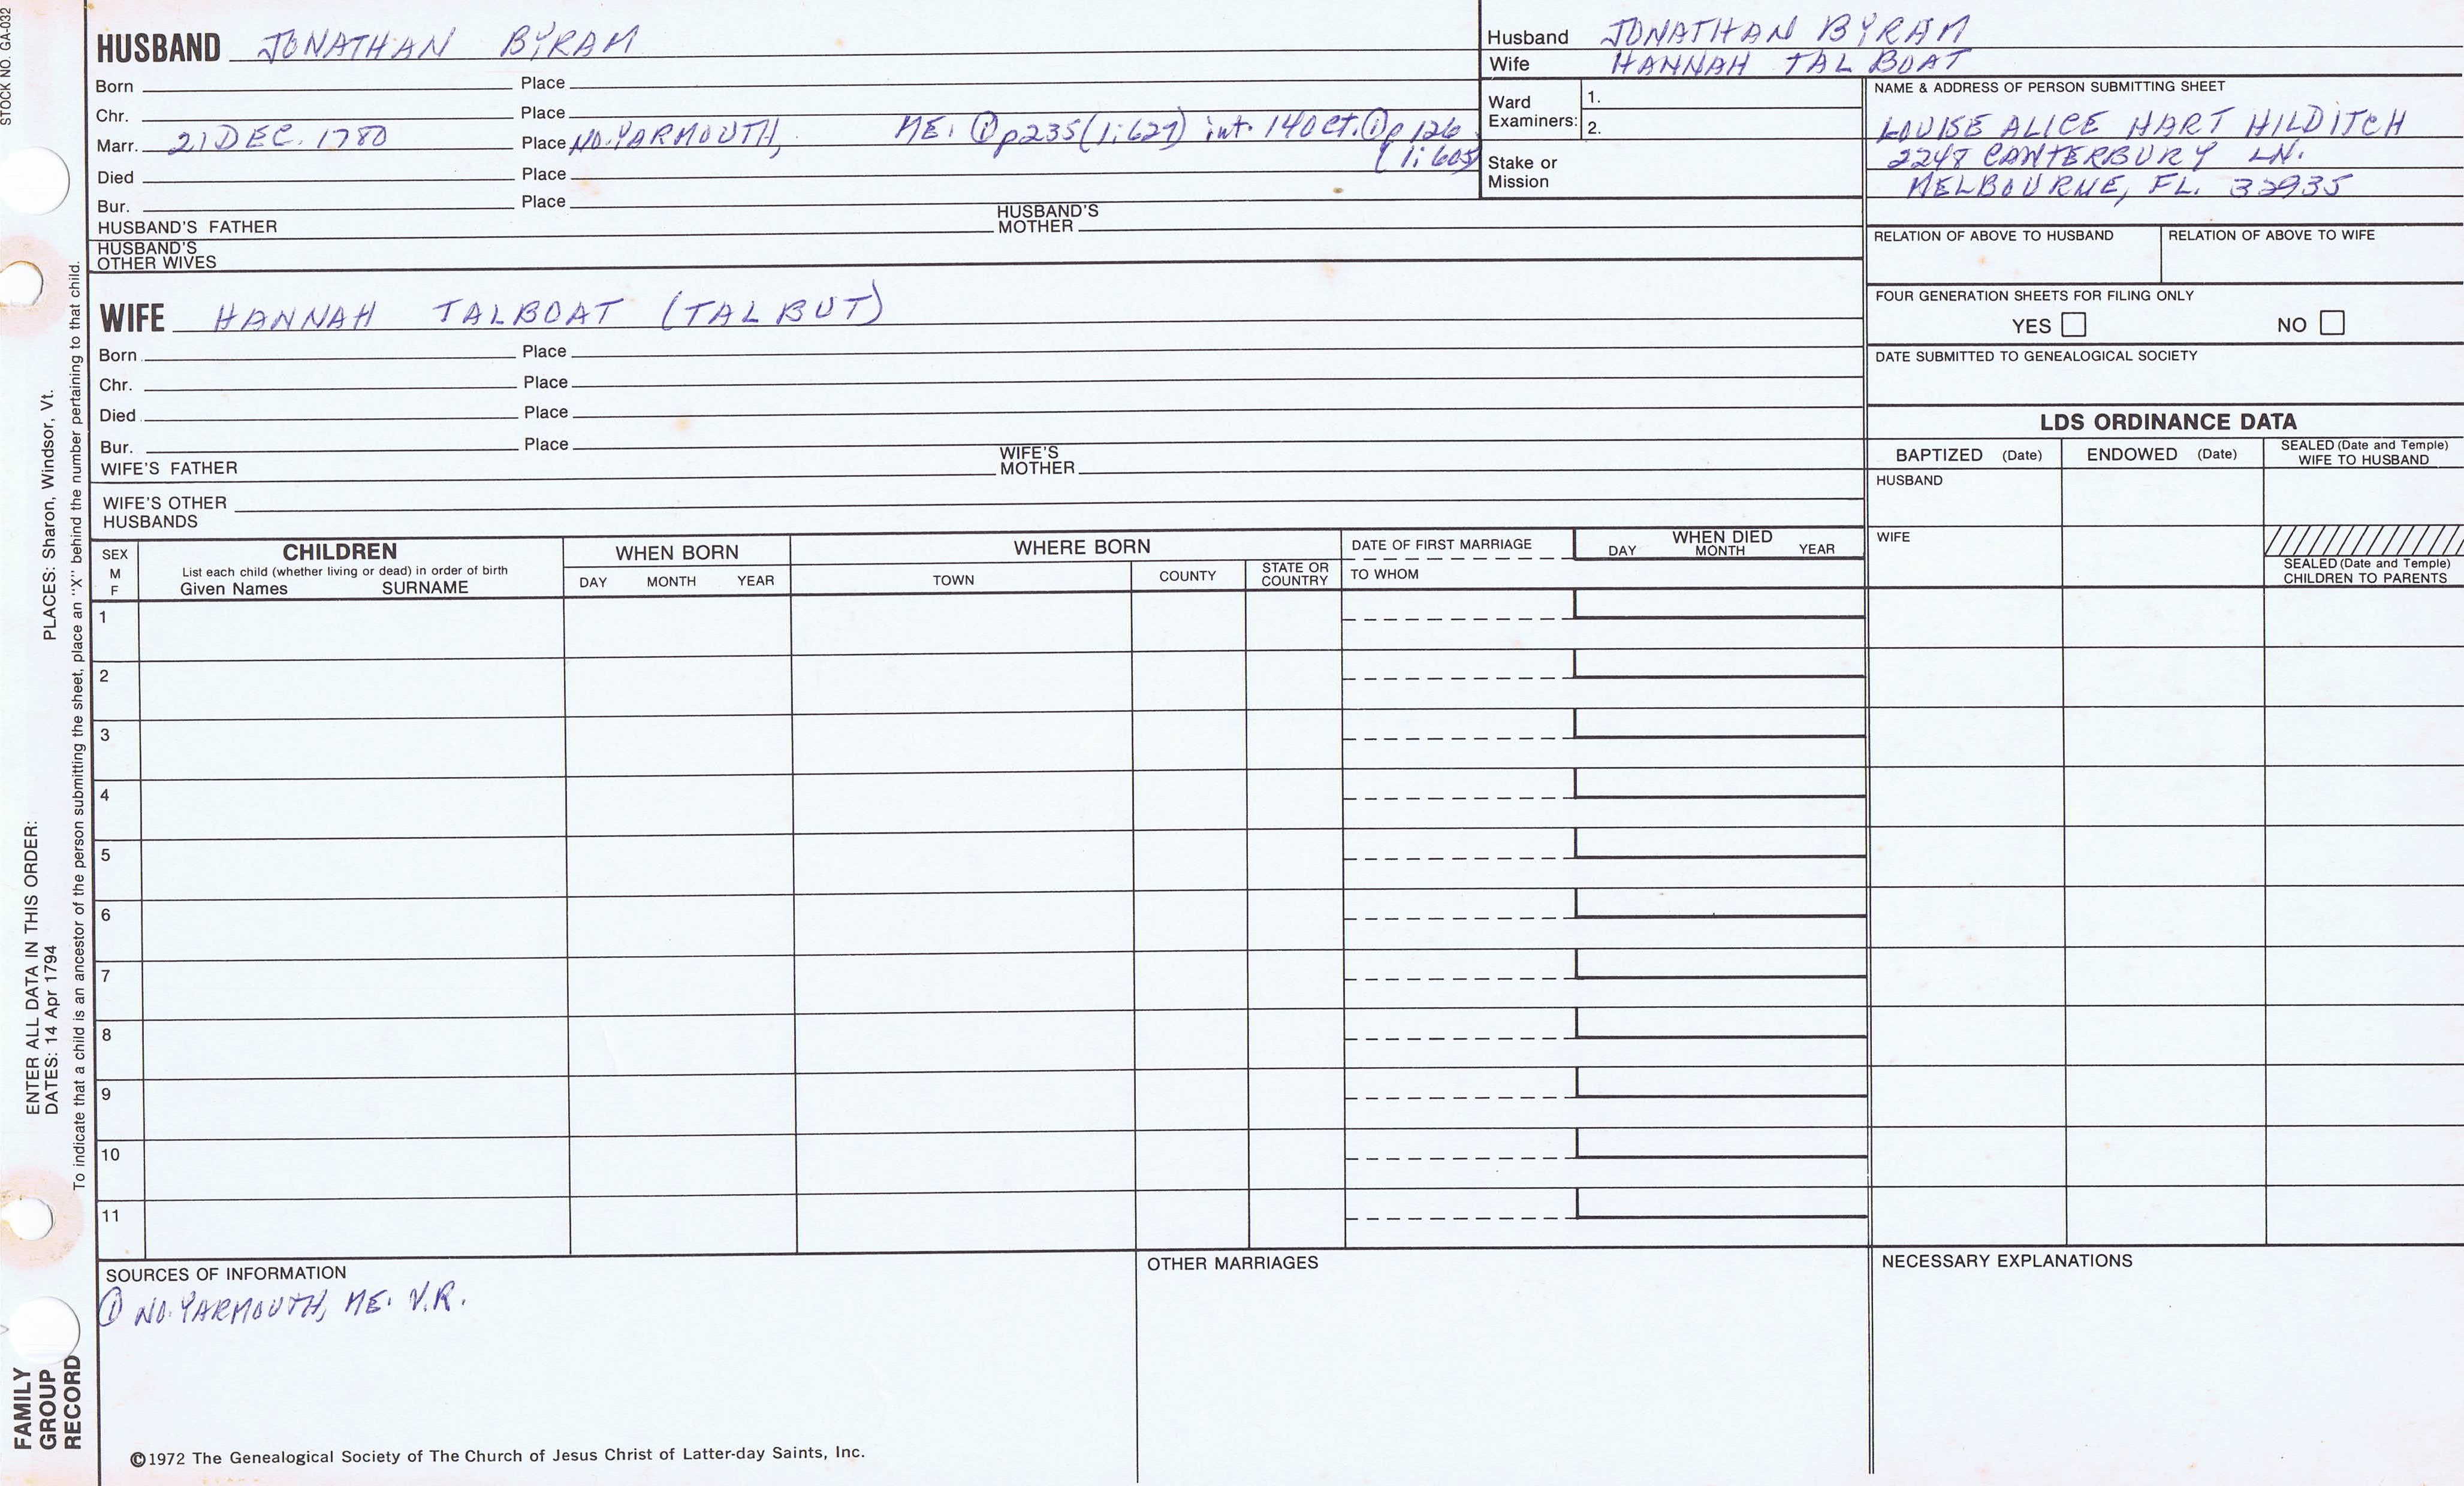 STOCK NO. GA-032
HUSBAND JONATHAN BYRAM
Born Place
Chr. Place
Marr. 21 DEC. 1780 Place NO. YARMOUTH, ME. ① p235 (1:627) int. 14 Oct. ① p 126 (1:605)
Died Place
Bur. Place
HUSBAND'S FATHER HUSBAND'S MOTHER
HUSBAND'S OTHER WIVES
Husband JONATHAN BYRAM
Wife HANNAH TALBOAT
Ward Examiners: 1.
2.
Stake or Mission
NAME & ADDRESS OF PERSON SUBMITTING SHEET
LOUISE ALICE HART HILDITCH
2248 CANTERBURY LN.
MELBOURNE, FL. 32935
RELATION OF ABOVE TO HUSBAND RELATION OF ABOVE TO WIFE
FOUR GENERATION SHEETS FOR FILING ONLY
YES NO
DATE SUBMITTED TO GENEALOGICAL SOCIETY
WIFE HANNAH TALBOAT (TALBUT)
Born Place
Chr. Place
Died Place
Bur. Place
WIFE'S FATHER WIFE'S MOTHER
WIFE'S OTHER HUSBANDS
LDS ORDINANCE DATA
BAPTIZED (Date) ENDOWED (Date) SEALED (Date and Temple) WIFE TO HUSBAND
HUSBAND
WIFE
SEALED (Date and Temple) CHILDREN TO PARENTS
SEX M F
CHILDREN
List each child (whether living or dead) in order of birth
Given Names SURNAME
WHEN BORN
DAY MONTH YEAR
WHERE BORN
TOWN COUNTY STATE OR COUNTRY
DATE OF FIRST MARRIAGE
TO WHOM
WHEN DIED
DAY MONTH YEAR
1
2
3
4
5
6
7
8
9
10
11
SOURCES OF INFORMATION
① NO. YARMOUTH, ME. V.R.
OTHER MARRIAGES
NECESSARY EXPLANATIONS
©1972 The Genealogical Society of The Church of Jesus Christ of Latter-day Saints, Inc.
FAMILY GROUP RECORD
ENTER ALL DATA IN THIS ORDER:
DATES: 14 Apr 1794 PLACES: Sharon, Windsor, Vt.
To indicate that a child is an ancestor of the person submitting the sheet, place an "X" behind the number pertaining to that child.